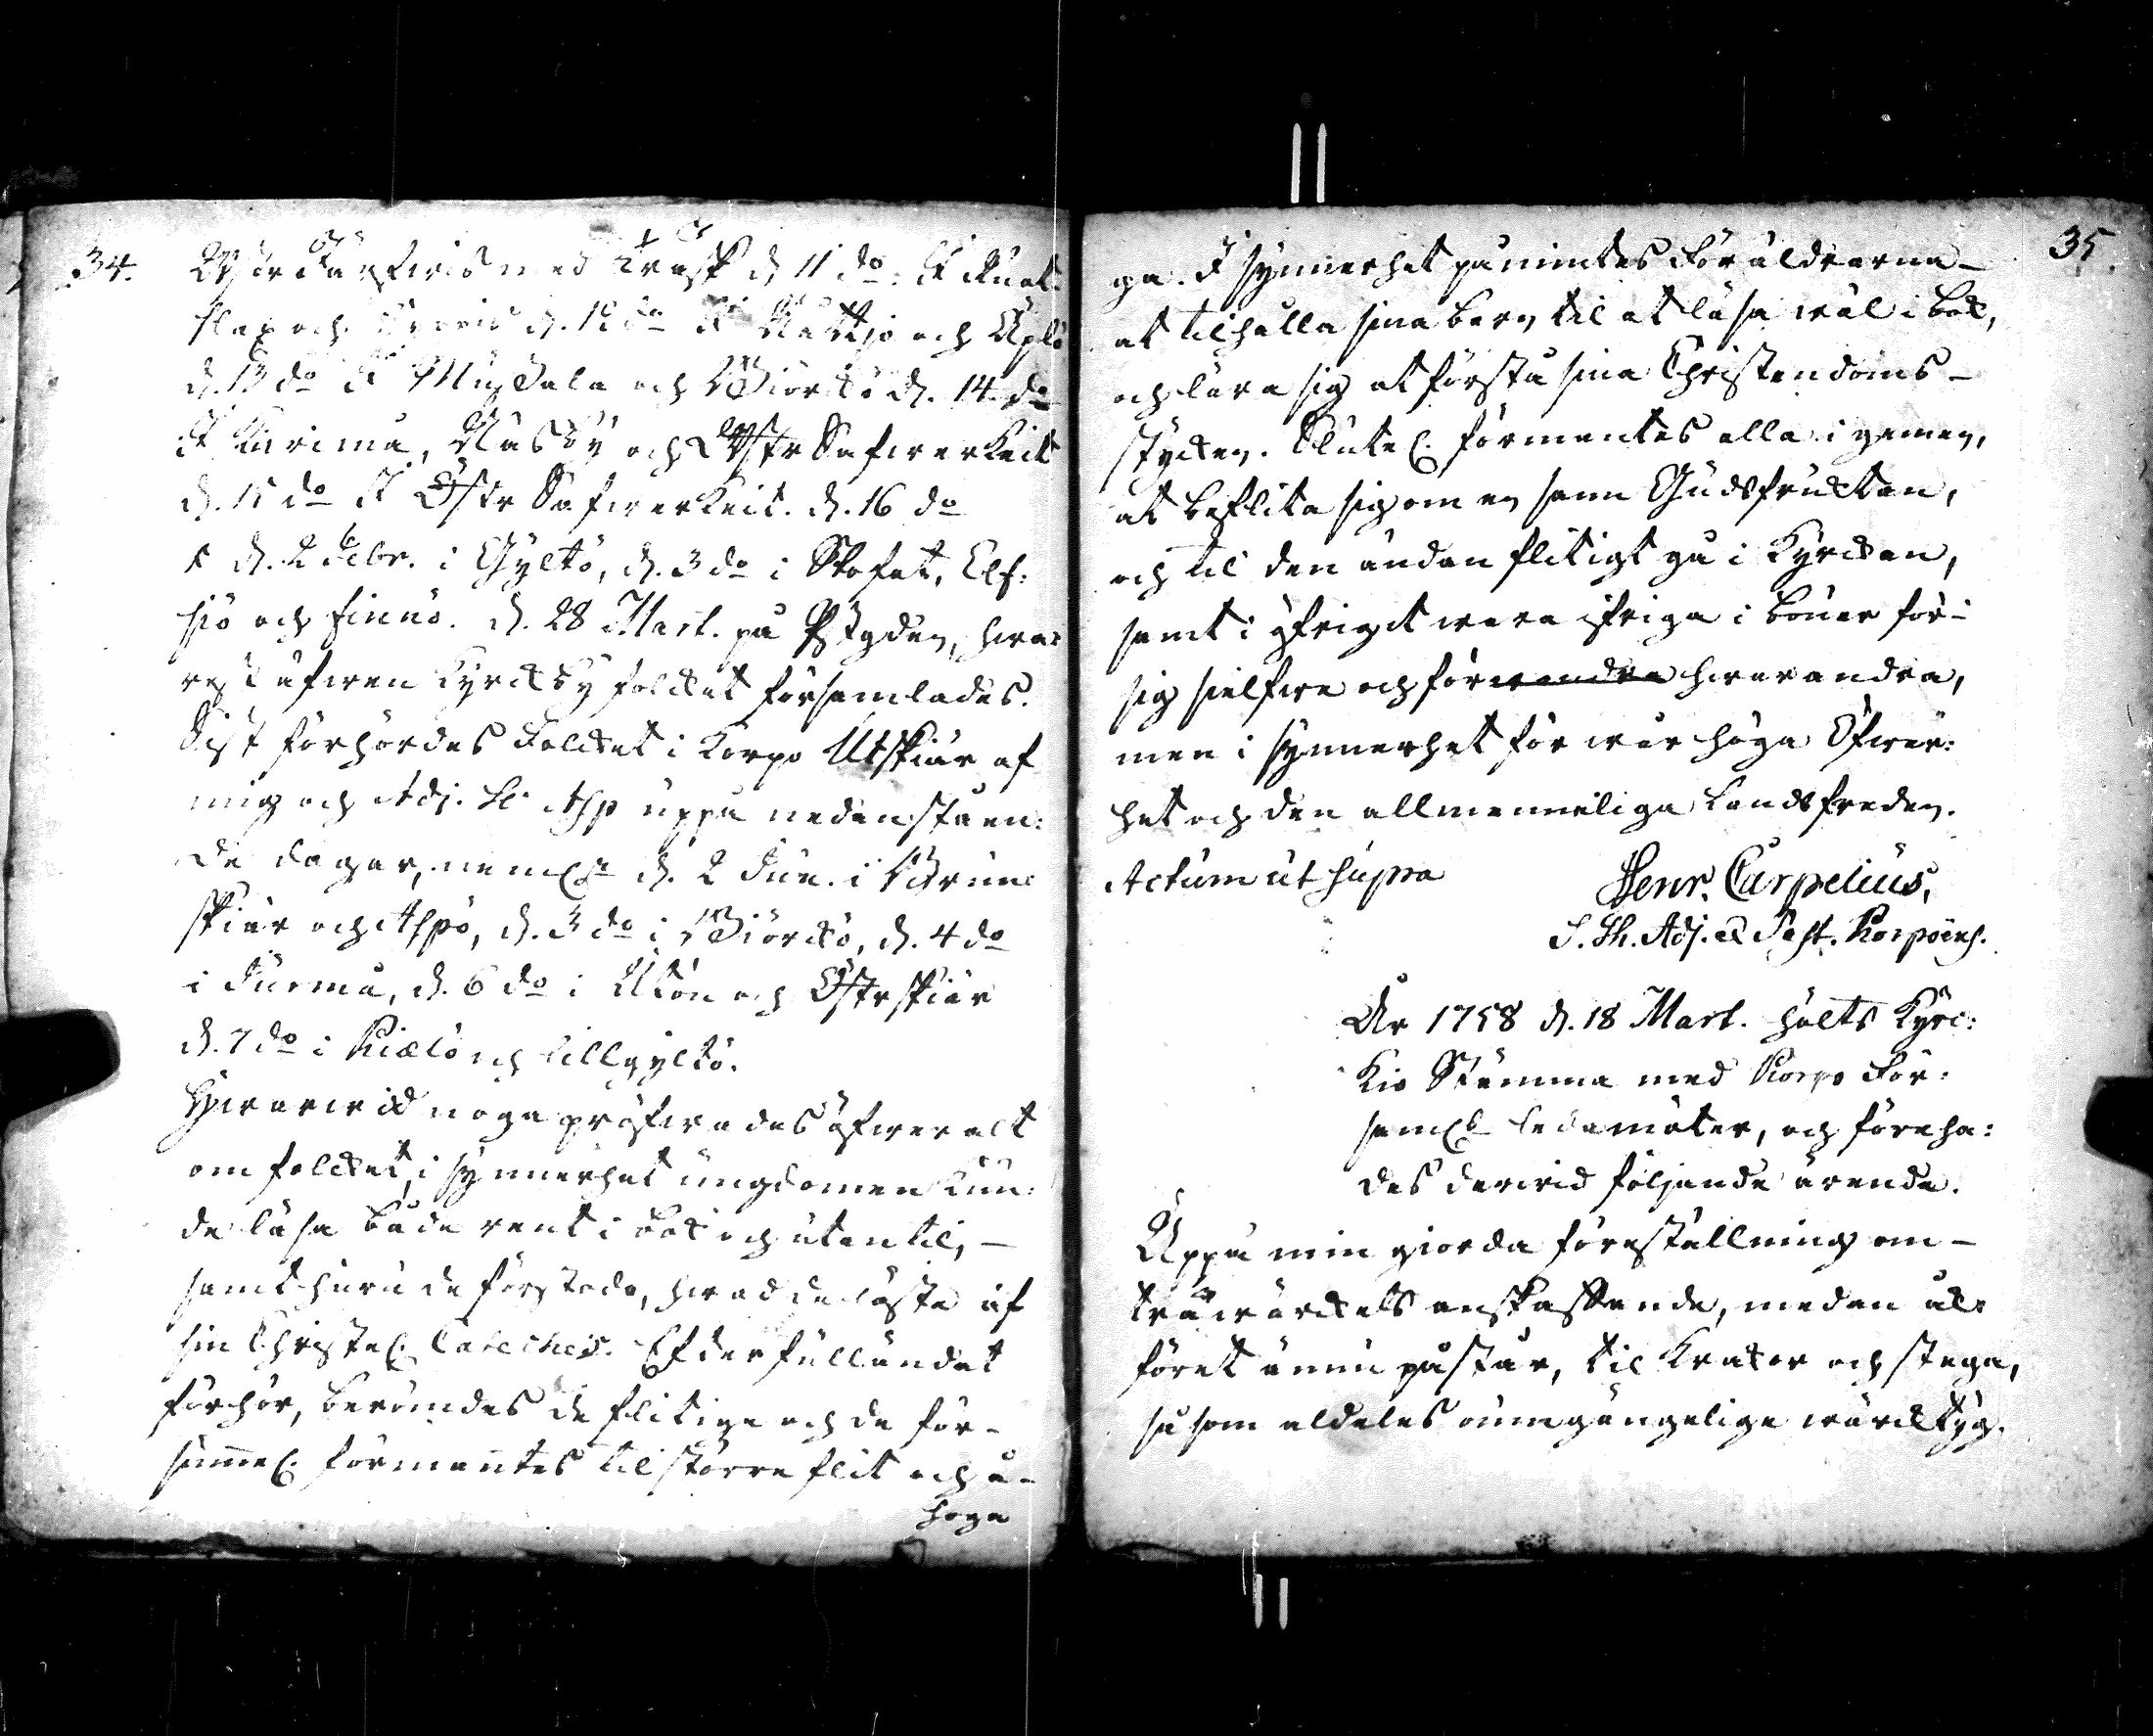 34.
med Träsk d. 11 do. It
och d. 12 do It och
d. 13 do It och Biörckö d. 14 do
It Kirimå, Nåsby och Wästr Safwerkeit
d. 15 do It Östr Safwerkeit. d. 16 do
d. 2 Febr. i Gyltö, d. 3 do i Skofat, Elf:
siö och Finnö. d. 28 Mart. på hwa:
rest äfwen Kyrckby folcket församlades.
Sist förhördes Folcket i Korpo Utskiär af
mig och Adj. Hr Asp uppå nedanståen:
de dagar, neml. d. 2 Jun. i Brun:
skiär och Aspö, d. 3 do i Biörckö, d. 4 do
i Jurmå, d. 6 do i Utön och Östrskiär
d. 7 do i Kiälö och Lillgyltö.
Hwarwid noga pröfwades öfweralt
om folcket, i synnerhet ungdomen kun:
de läsa både rent i bok och utantil,
samt huru de förstodo, hwad de läste af
sin Christel. Cateches. Efter fulländat
förhör, berömdes de flitige och de för-
sumel. förmantes til större flit och å-
håga
35.
ga. I synnerhet påmintes Föräldrarna
at tilhålla sina barn til at läsa wäl i bok,
och lära sig at förstå sina Christendoms-
stycken. Slutel. förmantes alla i gemen,
at beflita sig om en sann Gudsfrucktan,
och til den ändan flitigt gå i Kyrckan,
samt i öfrigit wara ifriga i böner för
sig sielfwa och för wandra hwarandra,
men i synnerhet för wår höga Öfwer:
het och den allmenneliga landsfreden.
Actum ut supra Henr. Carpelius,
S. Th. Adj. et Past. Korpoens.
År 1758 d. 18 Mart. hölts Kyrc:
kio Stämma med Korpo För:
saml. ledamöter, och föreha:
des derwid följande ärende.
Uppå min giorda föreställning om
träwärckets anskaffande, medan åk:
föret ännu påstår, til Krakor och stega,
så som aldeles oumgängelige wärcktyg.